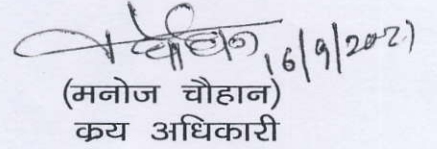 16/9/2021
(मनोज चौहान)
क्रय अधिकारी